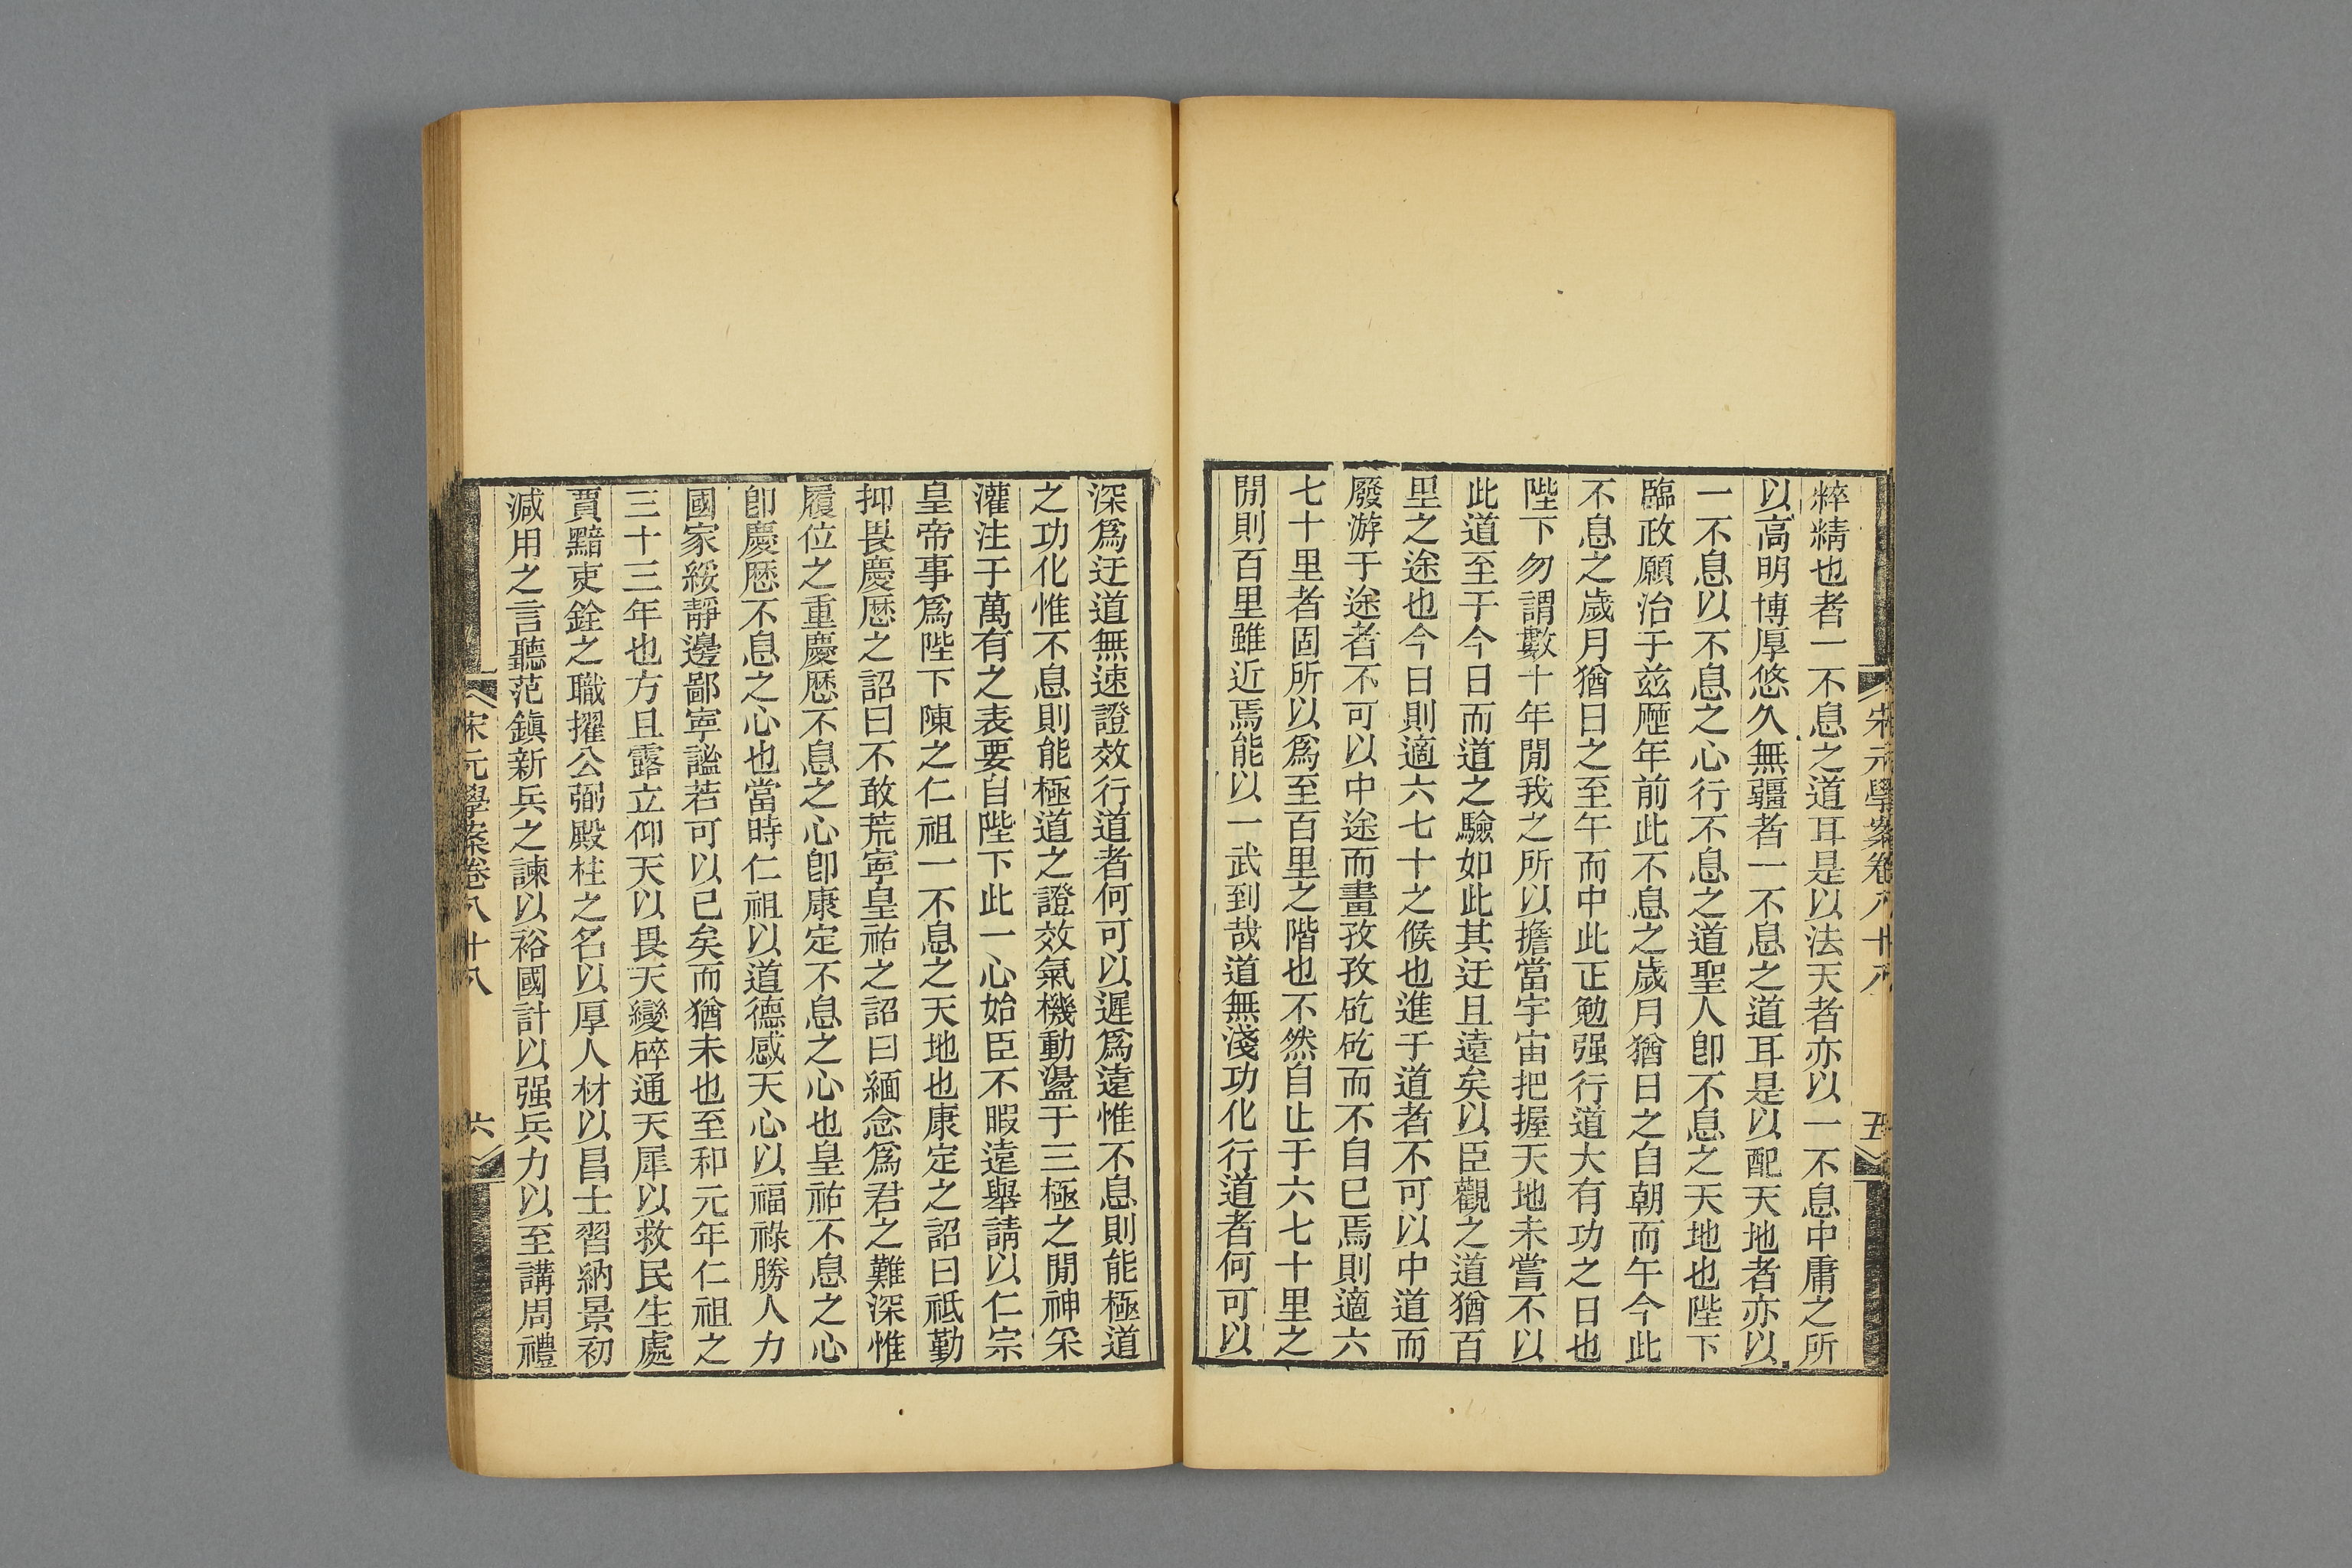 宋元學案卷八十八
五
粹精也者一不息之道耳是以法天者亦以一不息中庸之所
以高明博厚悠久無疆者一不息之道耳是以配天地者亦以
一不息以不息之心行不息之道聖人卽不息之天地也陛下
臨政願治于兹歷年前此不息之歲月猶日之自朝而午今此
不息之歲月猶日之至午而中此正勉强行道大有功之日也
陛下勿謂數十年閒我之所以擔當宇宙把握天地未嘗不以
此道至于今日而道之驗如此其迂且遠矣以臣觀之道猶百
里之途也今日則適六七十之候也進于道者不可以中道而
廢游于途者不可以中途而畫孜孜矻矻而不自已焉則適六
七十里者固所以爲至百里之階也不然自止于六七十里之
閒則百里雖近焉能以一武到哉道無淺功化行道者何可以
深爲迂道無速證效行道者何可以遲爲遠惟不息則能極道
之功化惟不息則能極道之證效氣機動盪于三極之閒神采
灌注于萬有之表要自陛下此一心始臣不暇遠舉請以仁宗
皇帝事爲陛下陳之仁祖一不息之天地也康定之詔曰祗勤
抑畏慶歷之詔曰不敢荒寧皇祐之詔曰緬念爲君之難深惟
履位之重慶歷不息之心卽康定不息之心也皇祐不息之心
卽慶歷不息之心也當時仁祖以道德感天心以福祿勝人力
國家綏靜邊鄙寧謐若可以已矣而猶未也至和元年仁祖之
三十三年也方且露立仰天以畏天變碎通天犀以救民生處
賈黯吏銓之職擢公弼殿柱之名以厚人材以昌士習納景初
減用之言聽范鎭新兵之諫以裕國計以强兵力以至講周禮
宋元學案卷八十八
六